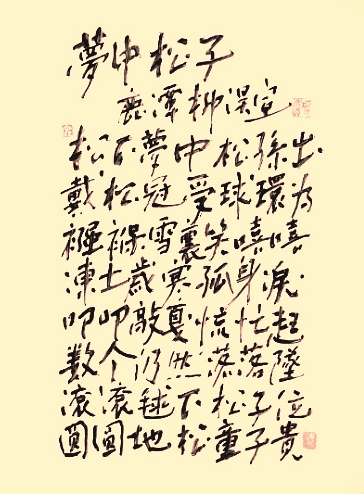 夢中松子
鹿潭柳宣
松下夢中松孫出
戴松冠受球環为
襁褓雪裏笑嘻嘻
凍土歲寒孤身淚
叩叩敲戛慌忙起
数人仍然落落墜
滚滚毬下松子位
圓圓地松童子貴